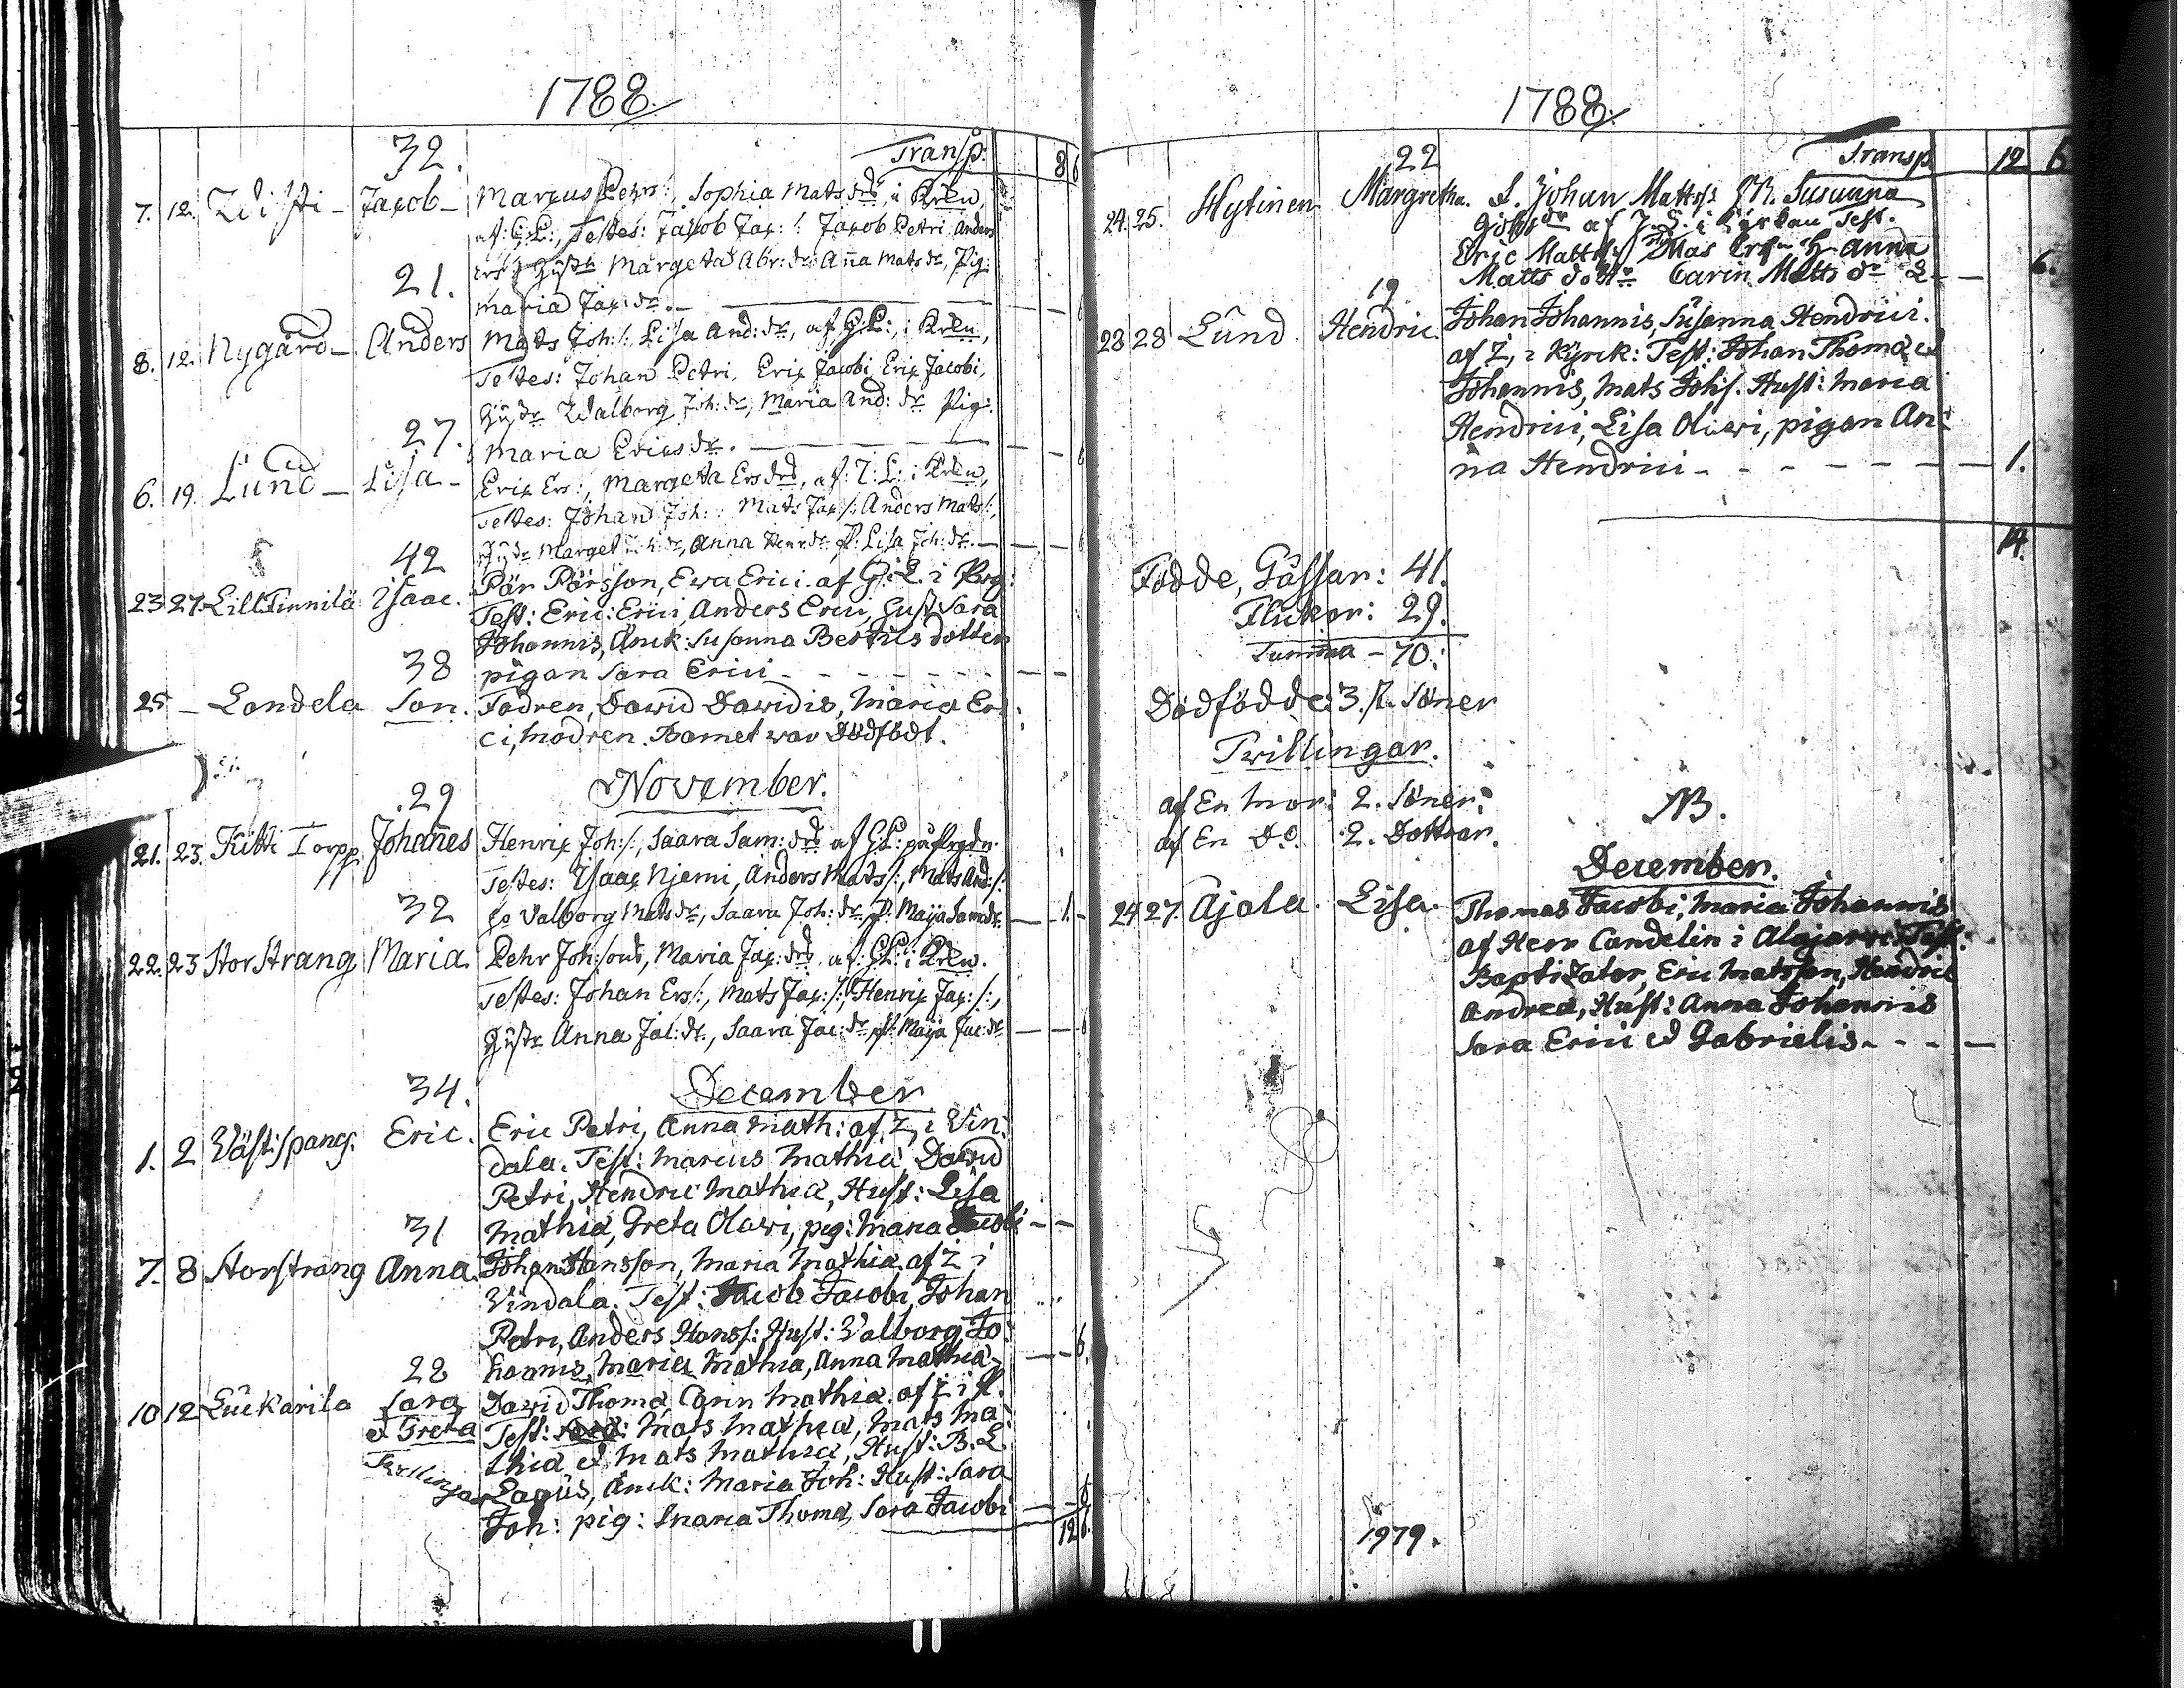 1788.
32. Transp: 8 6
7. 12. Widsti - Jacob - Marcus Pehrs:, Sophia Mats drs i Krkn,
af: G:L:, Testes: Jacob Jac:/: Jacob Petri, Anders
Ers:/ Hustr Margeta Abr: dr Anna Mats dr, Pig:
21. Maria Jac: dr. 6
8. 12. Nygård - Anders Mats Joh:/: Lisa And: dr, af G:L:, i Krkn,
Testes: Johan Petri, Eric Jacobi, Eric Jacobi,
Hustr Walborg Joh: dr, Maria And: dr Pig:
27. Maria Erics dr. 6
6. 19. Lund - Lisa - Eric Ers:, Margeta Ers drs, af: L: i Krkn,
Testes: Johan Joh: Mats Jac/: Anders Mats/:,
42 Hustr Marget Joh: dr, Anna Henr dr P: Lisa Joh: dr. 6
23 27. Lill Finnilä Isaac. Pär Pärsson, Ewa Erici. af G: L. i Prg:
Test: Eric: Erici, Anders Erici, Hust Sara
Johannis, Änck: Susanna Bertils dotter
38 pigan Sara Erici - - - - - -
25 - Landela Son. Fadren, David Davidis, Maria Eri
ci, modren. Barnet war Dödfödt.
November.
29
21. 23. Kitti Torpp Johannes Henric Joh:/:, Saara Sam: drs af G:L:
Testes: Isaac Njemi, Anders Mats/:, Mats And:/:
32 Valborg Mats dr, Saara Joh: dr, P: Maija Sam: dr. 1. -
22. 23 Storstrang Maria Pehr Joh:sons, Maria Jac: drs af: G:L: i Krkn.
Testes: Johan Ers/:, Mats Jac:/:, Henric Jac:/:,
Hustr Anna Jac: dr., Saara Jac: dr P: Maija Jac: dr 6
34. December
1. 2 Wäst:spang. Eric. Eric Petri, Anna Math: af Z, i Vin:
dala. Test: Marcus Mathiæ, David
Petri, Hendric Mathiæ, Hust: Lisa
31 Mathiæ, Greta Olavi, pig: Maria Jacobi - -
7. 8 Storstrang Anna. Johan Hansson, Maria Mathiæ af Z i
Vindala. Test: Jacob Jacobi, Johan
Petri, Anders Hanss: Hust: Valborg Jo:
22 hannis, Maria Mathiæ, Anna Mathiæ - 6.
10 12 Luckarila Sara David Thomæ, Carin Mathiæ. af Z i P.
et Greta Test: Mats Mathiæ, Mats Ma:
Tvillingar thiæ et Mats Mathiæ, Hust: B. L.
Lagus, Änck: Maria Joh: Hust: Sara
Joh: pig: Maria Thomæ, Sara Jacobi 6
12 6.
1788.
22 Transp 12 6
24. 25. Hytinen Margretha. S. Johan Mattss: M. Susanna
af Z: L: i Kyrkan Test.
Eric Matts: Anna
Matts dottr Carin Matts dr 6.
19
28 28 Lund. Hendric. Johan Johannis, Susanna Hendrici.
af Z, i Kyrck: Test: Johan Thomæ et
Johannis, Mats Johs. Hust: Maria
Hendrici, Lisa Olavi, pigan An:
na Hendrici - - - - - - 1.
14.
Födde, Gåssar: 41.
Flickor: 29.
Summa - 70.:
Dödfödde: 3. P. Söner
Twillingar.
af En mor: 2. Söner.
af En Do. 2. Döttrar.
NB.
December.
24 27. Ajala. Lisa. Thomas Jacobi, Maria Johannis
af Herr Candelin i Alajärvi Test:
Baptizator, Eric Matsson, Hendric
Andreæ, Hust: Anna Johannis
Sara Erici et Gabrielis - - - -
1979.